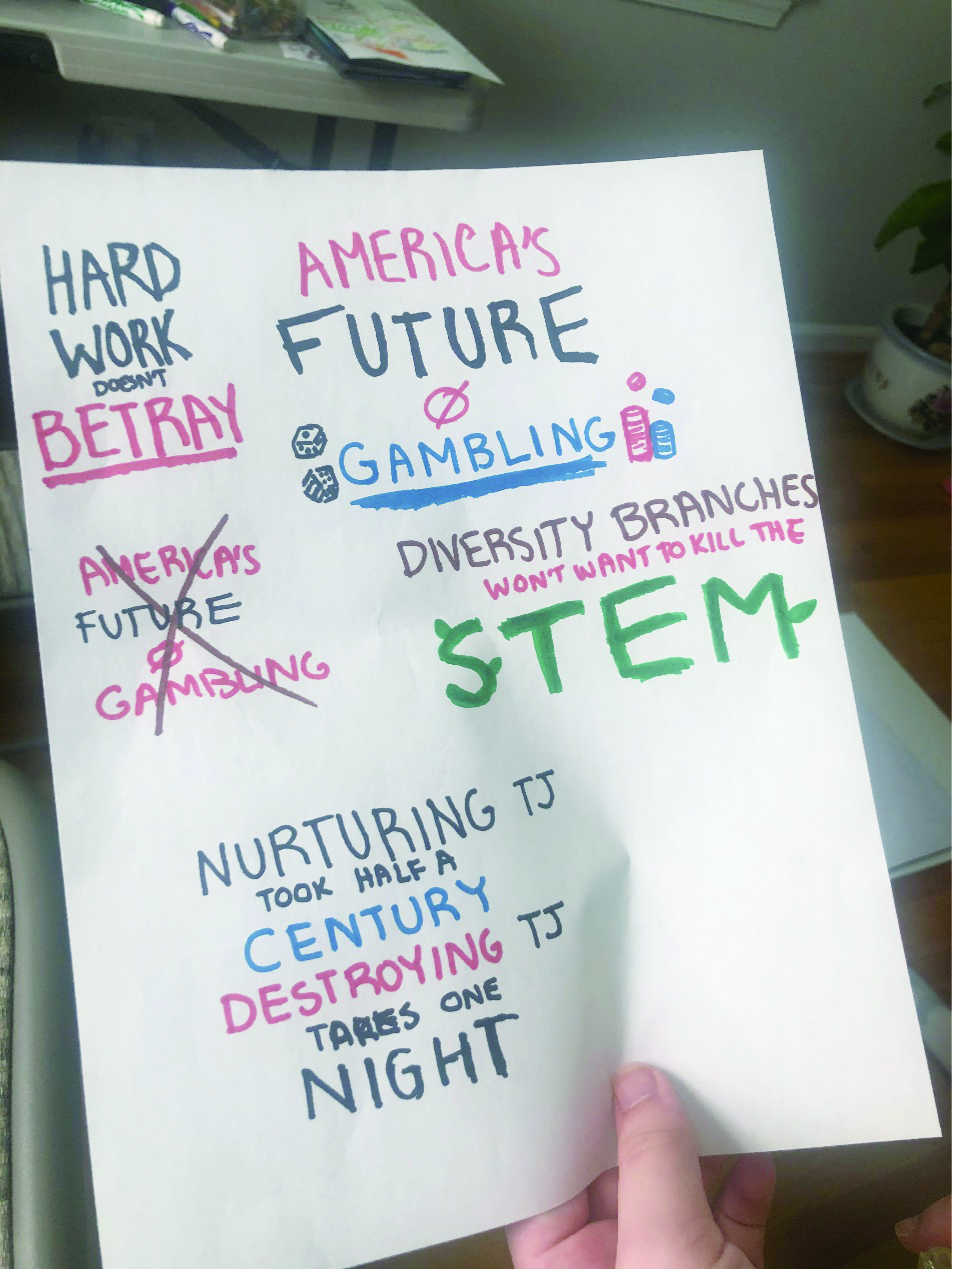 HARD
WORK
DOESN'T
BETRAY
AMERICA'S
FUTURE
Ø
GAMBLING
AMERICA'S
FUTURE
Ø
GAMBLING
DIVERSITY BRANCHES
WON'T WANT TO KILL THE
STEM
NURTURING TJ
TOOK HALF A
CENTURY
DESTROYING TJ
TAKES ONE
NIGHT